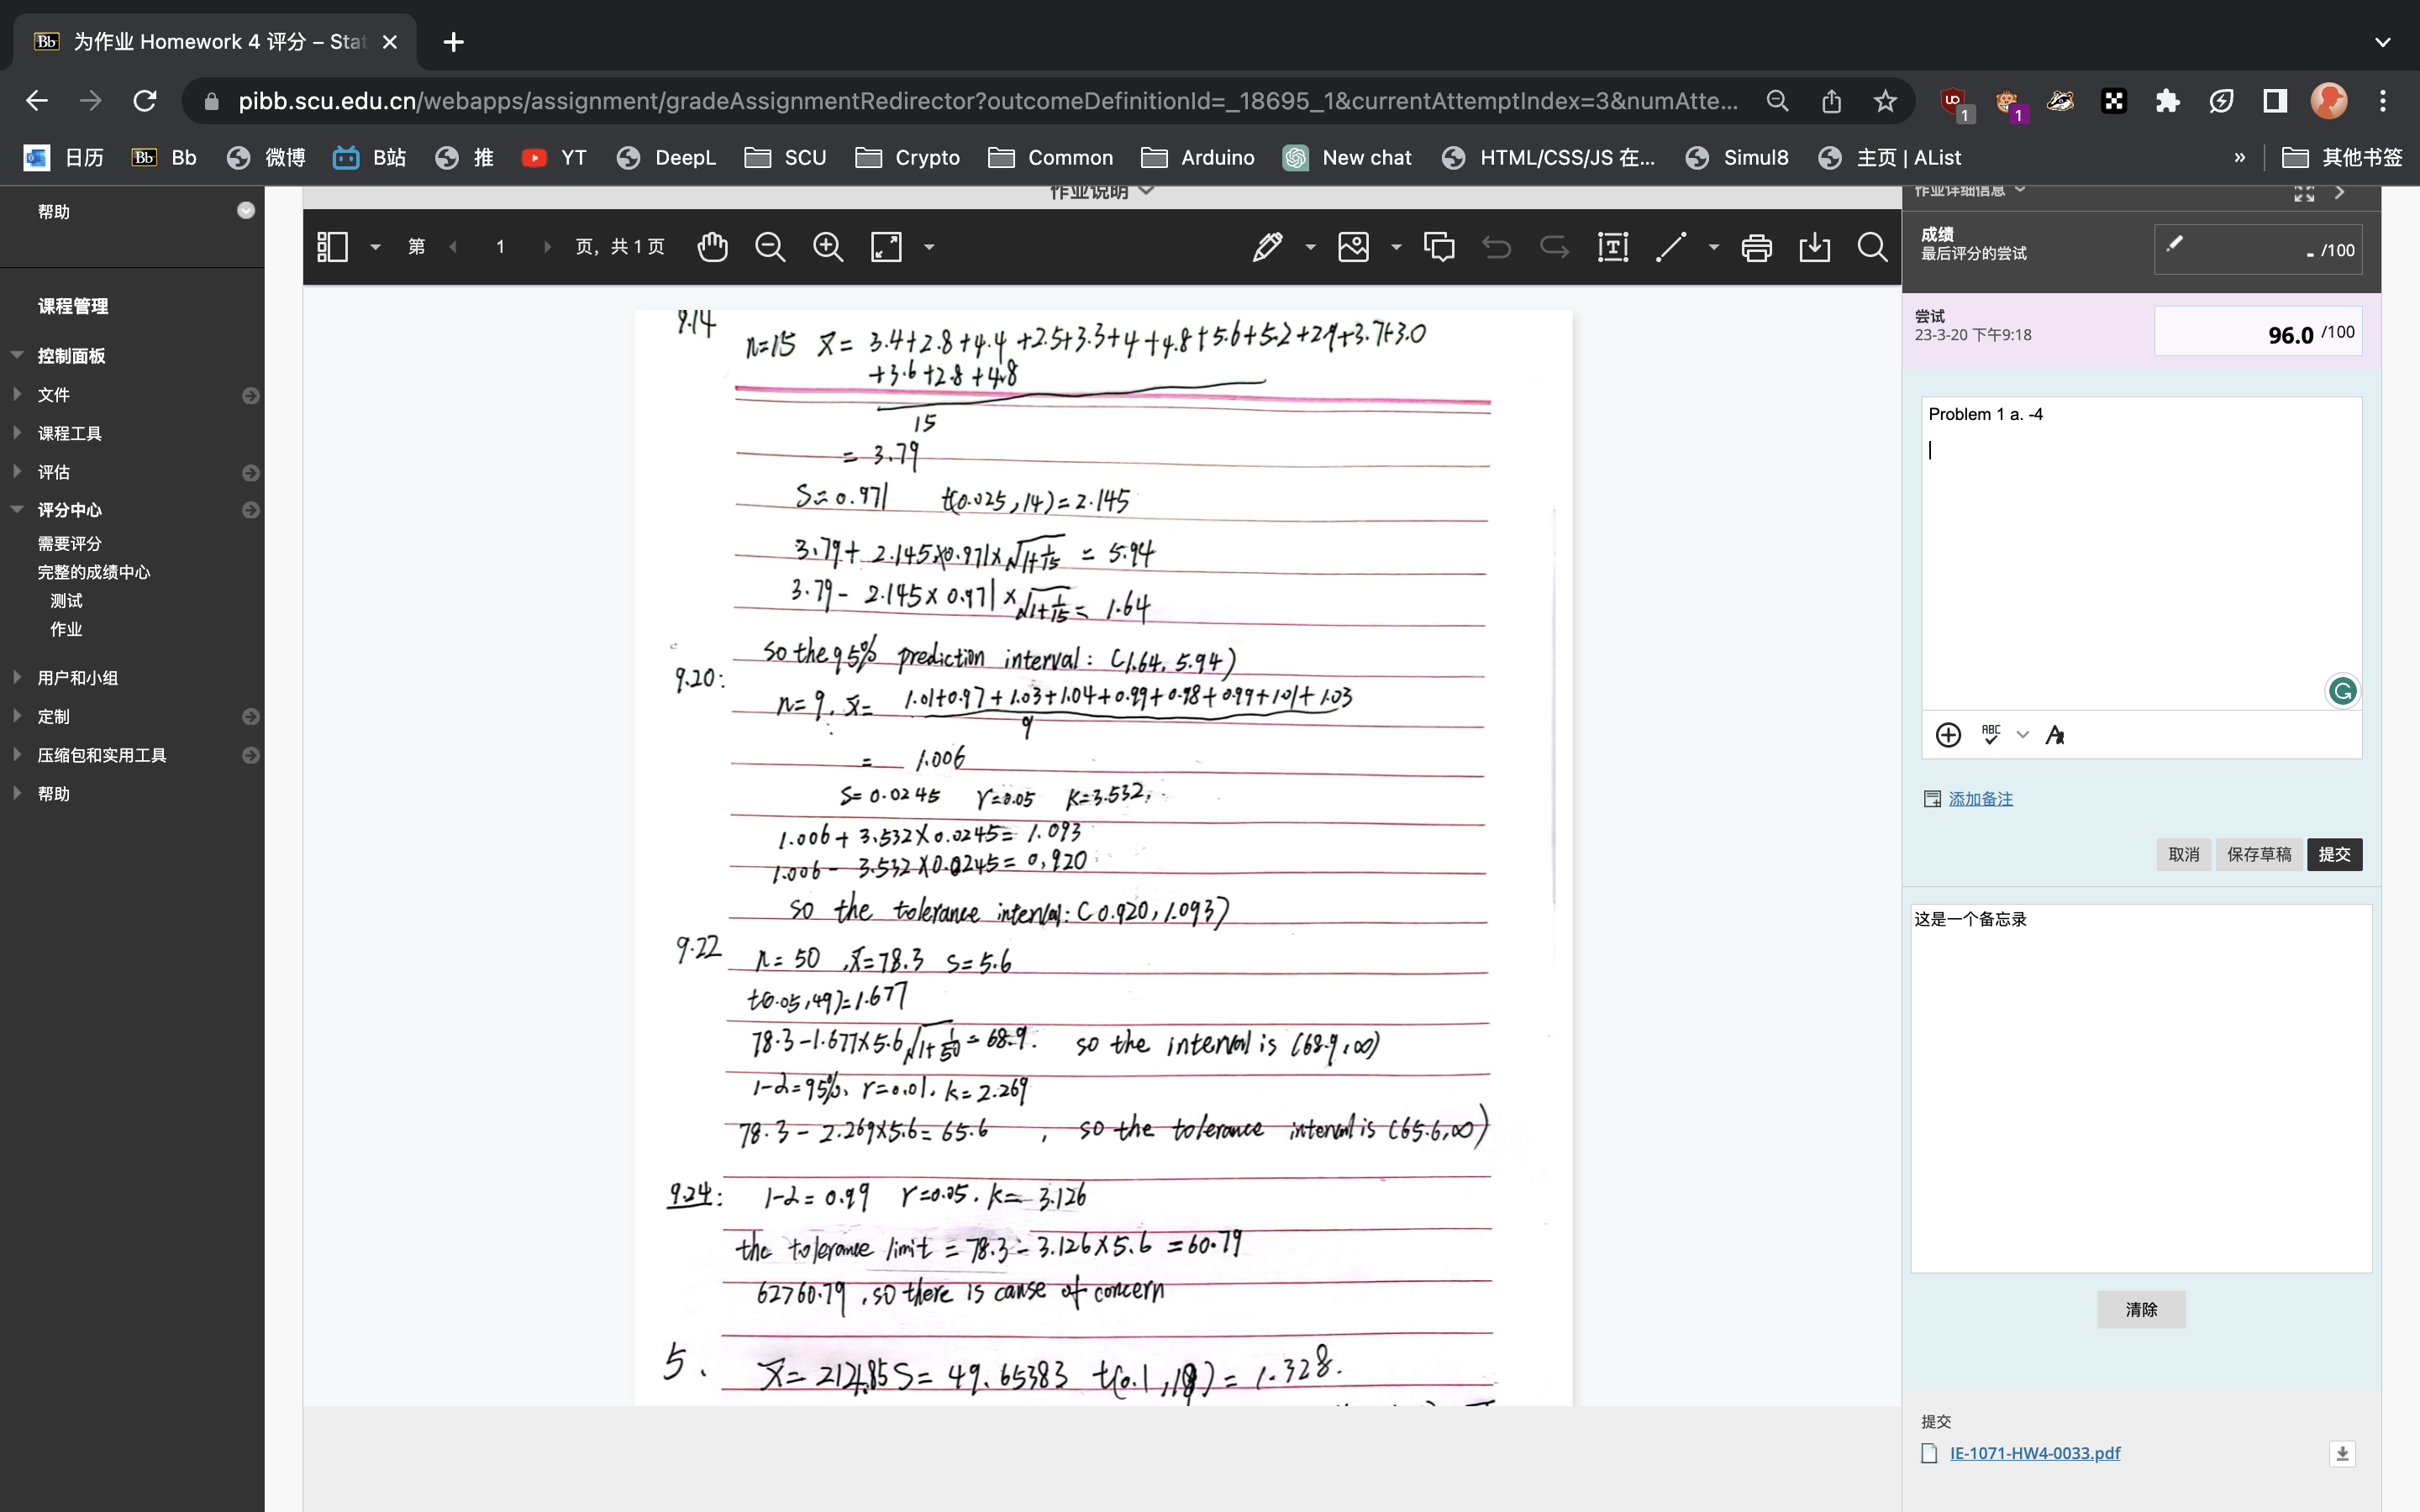 为作业 Homework 4 评分 – Stat
pibb.scu.edu.cn/webapps/assignment/gradeAssignmentRedirector?outcomeDefinitionId=_18695_1&currentAttemptIndex=3&numAtte...
1
1
日历
Bb
微博
B站
推
YT
DeepL
SCU
Crypto
Common
Arduino
New chat
HTML/CSS/JS 在...
Simul8
主页 | AList
»
其他书签
帮助
课程管理
控制面板
文件
课程工具
评估
评分中心
需要评分
完整的成绩中心
测试
作业
用户和小组
定制
压缩包和实用工具
帮助
作业说明
第 1 页，共 1 页
9.14
n=15 x̄= 3.4+2.8+4.4+2.5+3.3+4+4.8+5.6+5.2+2.9+3.7+3.0
+3.6+2.8+4.8
15
= 3.79
S=0.971 t(0.025,14)=2.145
3.79+2.145×0.971×√1+1/15 = 5.94
3.79-2.145×0.971×√1+1/15 = 1.64
so the 95% prediction interval: (1.64, 5.94)
9.20:
n=9, x̄= 1.01+0.97+1.03+1.04+0.99+0.98+0.99+1.01+1.03
9
= 1.006
S=0.0245 r=0.05 K=3.532,
1.006+3.532×0.0245=1.093
1.006-3.532×0.0245=0.920
so the tolerance interval: (0.920, 1.093)
9.22
n=50, x̄=78.3 S=5.6
t(0.05,49)=1.677
78.3-1.677×5.6√1+1/50 = 68.9. so the interval is (68.9,∞)
1-α=95%, r=0.01, k=2.269
78.3-2.269×5.6=65.6, so the tolerance interval is (65.6,∞)
9.24: 1-α=0.99 r=0.05, k=3.126
the tolerance limit = 78.3-3.126×5.6=60.79
62>60.79, so there is cause of concern
5. x̄= 214.85 S= 49.65383 t(0.1,19)=1.328.
作业详细信息
成绩
最后评分的尝试
- /100
尝试
23-3-20 下午9:18
96.0 /100
Problem 1 a. -4
ABC
添加备注
取消
保存草稿
提交
这是一个备忘录
清除
提交
IE-1071-HW4-0033.pdf